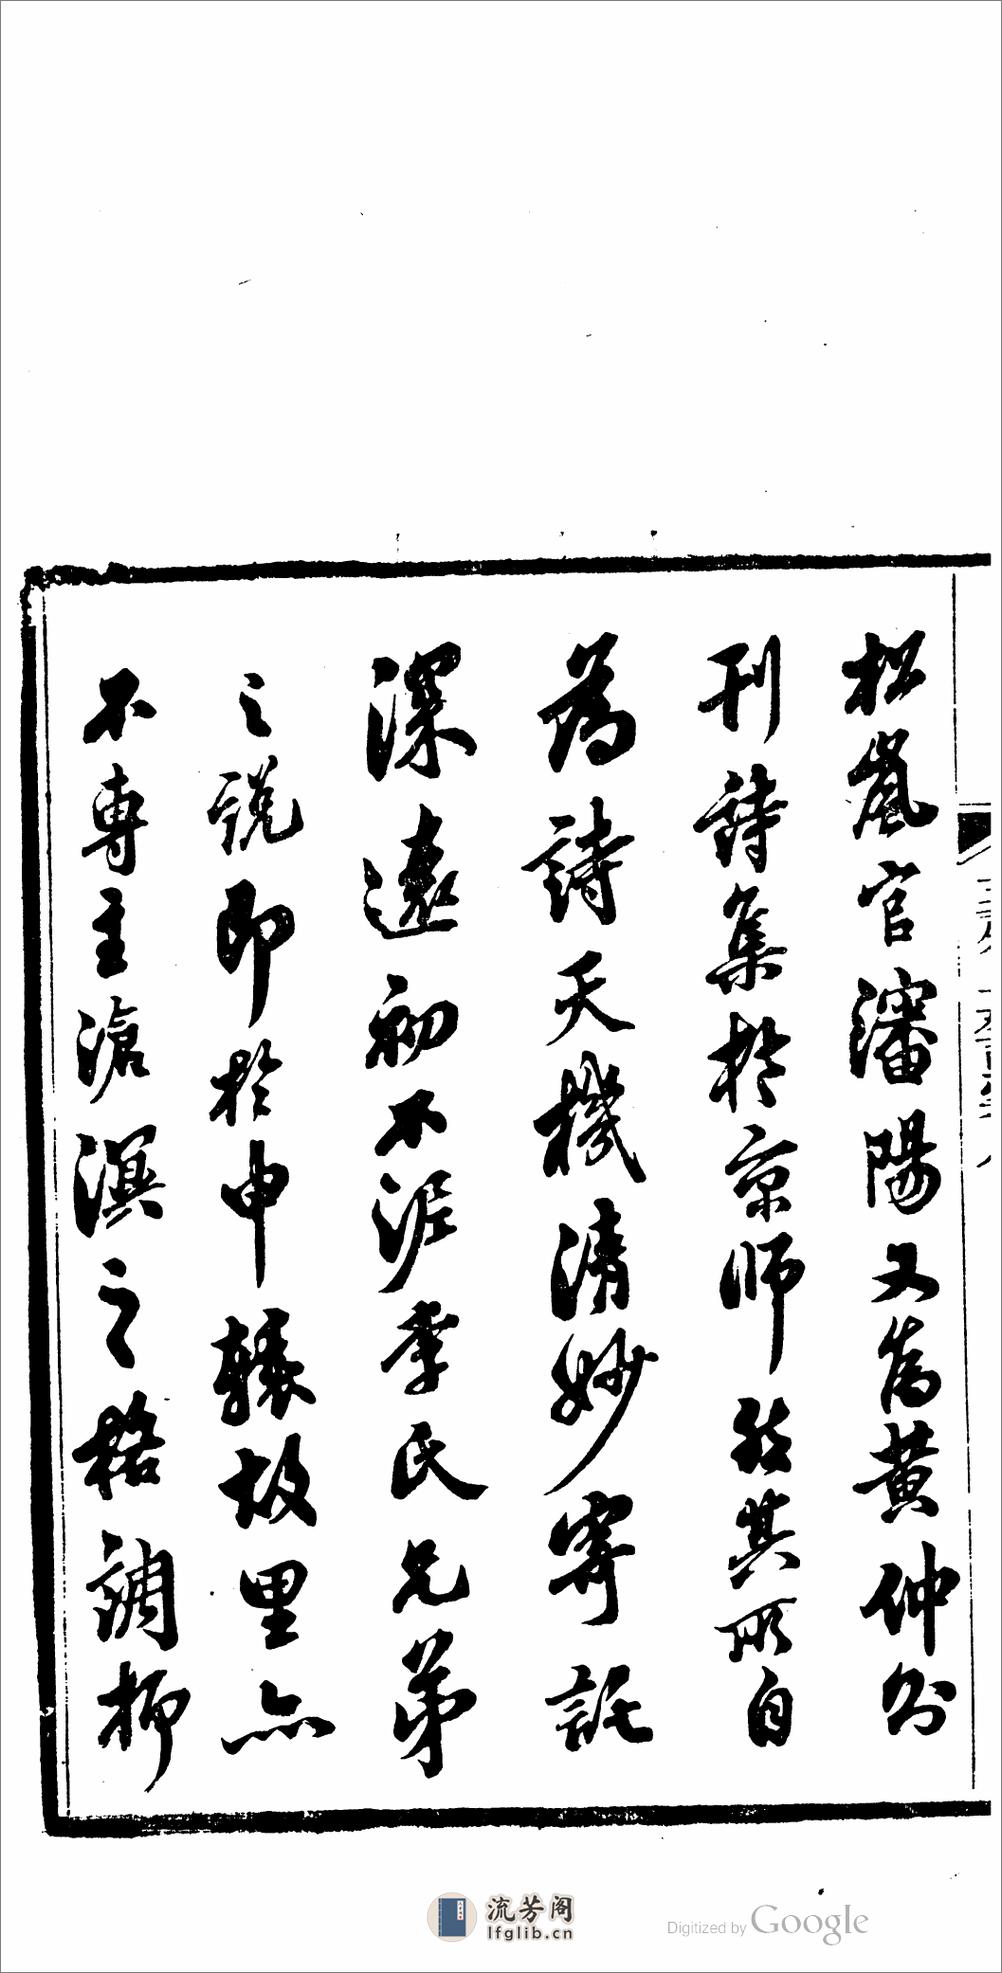 松嵐官瀋陽又為黃仲則
刊詩集於京師然其所自
為詩天機清妙寄託
深遠初不泥李氏兄弟
之說即於申轅故里亦
不專主滄溟之格調抑
流芳阁
lfglib.cn
Digitized by Google